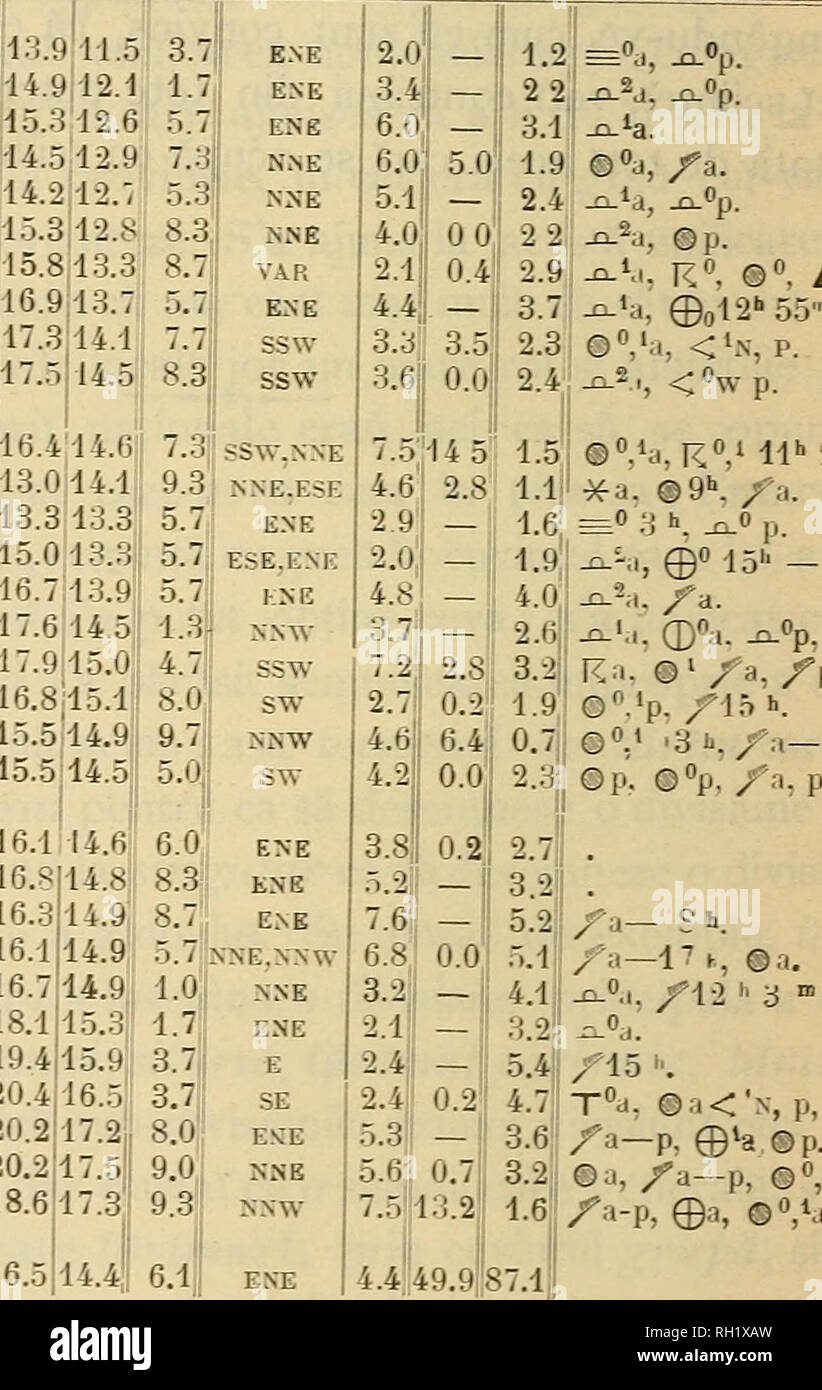 13.9 11.5 3.7 ENE 2.0 — 1.2 ≡⁰a, ⌓⁰p.
14.9 12.1 1.7 ENE 3.4 — 2 2 ⌓²a, ⌓⁰p.
15.3 12.6 5.7 ENE 6.0 — 3.1 ⌓¹a.
14.5 12.9 7.3 NNE 6.0 5.0 1.9 ⊚⁰a, a.
14.2 12.7 5.3 NNE 5.1 — 2.4 ⌓¹a, ⌓⁰p.
15.3 12.8 8.3 NNE 4.0 0 0 2 2 ⌓²a, ⊚p.
15.8 13.3 8.7 VAR 2.1 0.4 2.9 ⌓¹a, ☈⁰, ⊚⁰,
16.9 13.7 5.7 ENE 4.4 — 3.7 ⌓¹a, ⊕₀12ʰ 55ᵐ
17.3 14.1 7.7 SSW 3.3 3.5 2.3 ⊚⁰,¹a, <¹N, P.
17.5 14.5 8.3 SSW 3.6 0.0 2.4 ⌓², <⁰W p.
16.4 14.6 7.3 SSW,NNE 7.5 14 5 1.5 ⊚⁰,¹a, ☈⁰,¹ 11ʰ
13.0 14.1 9.3 NNE,ESE 4.6 2.8 1.1 ⚹a, ⊚9ʰ, a.
13.3 13.3 5.7 ENE 2.9 — 1.6 ≡⁰ 3 ʰ, ⌓⁰ p.
15.0 13.3 5.7 ESE,ENE 2.0 — 1.9 ⌓²a, ⊕⁰ 15ʰ —
16.7 13.9 5.7 ENE 4.8 — 4.0 ⌓²a, a.
17.6 14.5 1.3 NNW 3.7 — 2.6 ⌓¹a, ⦶⁰a, ⌓⁰p,
17.9 15.0 4.7 SSW 7.2 2.8 3.2 ☈a, ⊚¹ a, p
16.8 15.1 8.0 SW 2.7 0.2 1.9 ⊚⁰,¹p, 15 ʰ.
15.5 14.9 9.7 NNW 4.6 6.4 0.7 ⊚⁰,¹ 3 ʰ, a—
15.5 14.5 5.0 SW 4.2 0.0 2.3 ⊚p, ⊚⁰p, a, p
16.1 14.6 6.0 ENE 3.8 0.2 2.7 .
16.8 14.8 8.3 ENE 5.2 — 3.2 .
16.3 14.9 8.7 ENE 7.6 — 5.2 a— ʰ.
16.1 14.9 5.7 NNE,NNW 6.8 0.0 5.1 a—17 ʰ, ⊚a.
16.7 14.9 1.0 NNE 3.2 — 4.1 ⌓⁰a, 12 ʰ 3 ᵐ
18.1 15.3 1.7 ENE 2.1 — 3.2 ⌓⁰a.
19.4 15.9 3.7 E 2.4 — 5.4 15 ʰ.
20.4 16.5 3.7 SE 2.4 0.2 4.7 ⊤⁰a, ⊚a<'N, p,
20.2 17.2 8.0 ENE 5.3 — 3.6 a—p, ⊕¹a, ⊚p.
20.2 17.5 9.0 NNE 5.6 0.7 3.2 ⊚a, a—p, ⊚⁰,
8.6 17.3 9.3 NNW 7.5 13.2 1.6 a-p, ⊕a, ⊚⁰,¹a
6.5 14.4 6.1 ENE 4.4 49.9 87.1
alamy
Image ID: RH1XAW
www.alamy.com